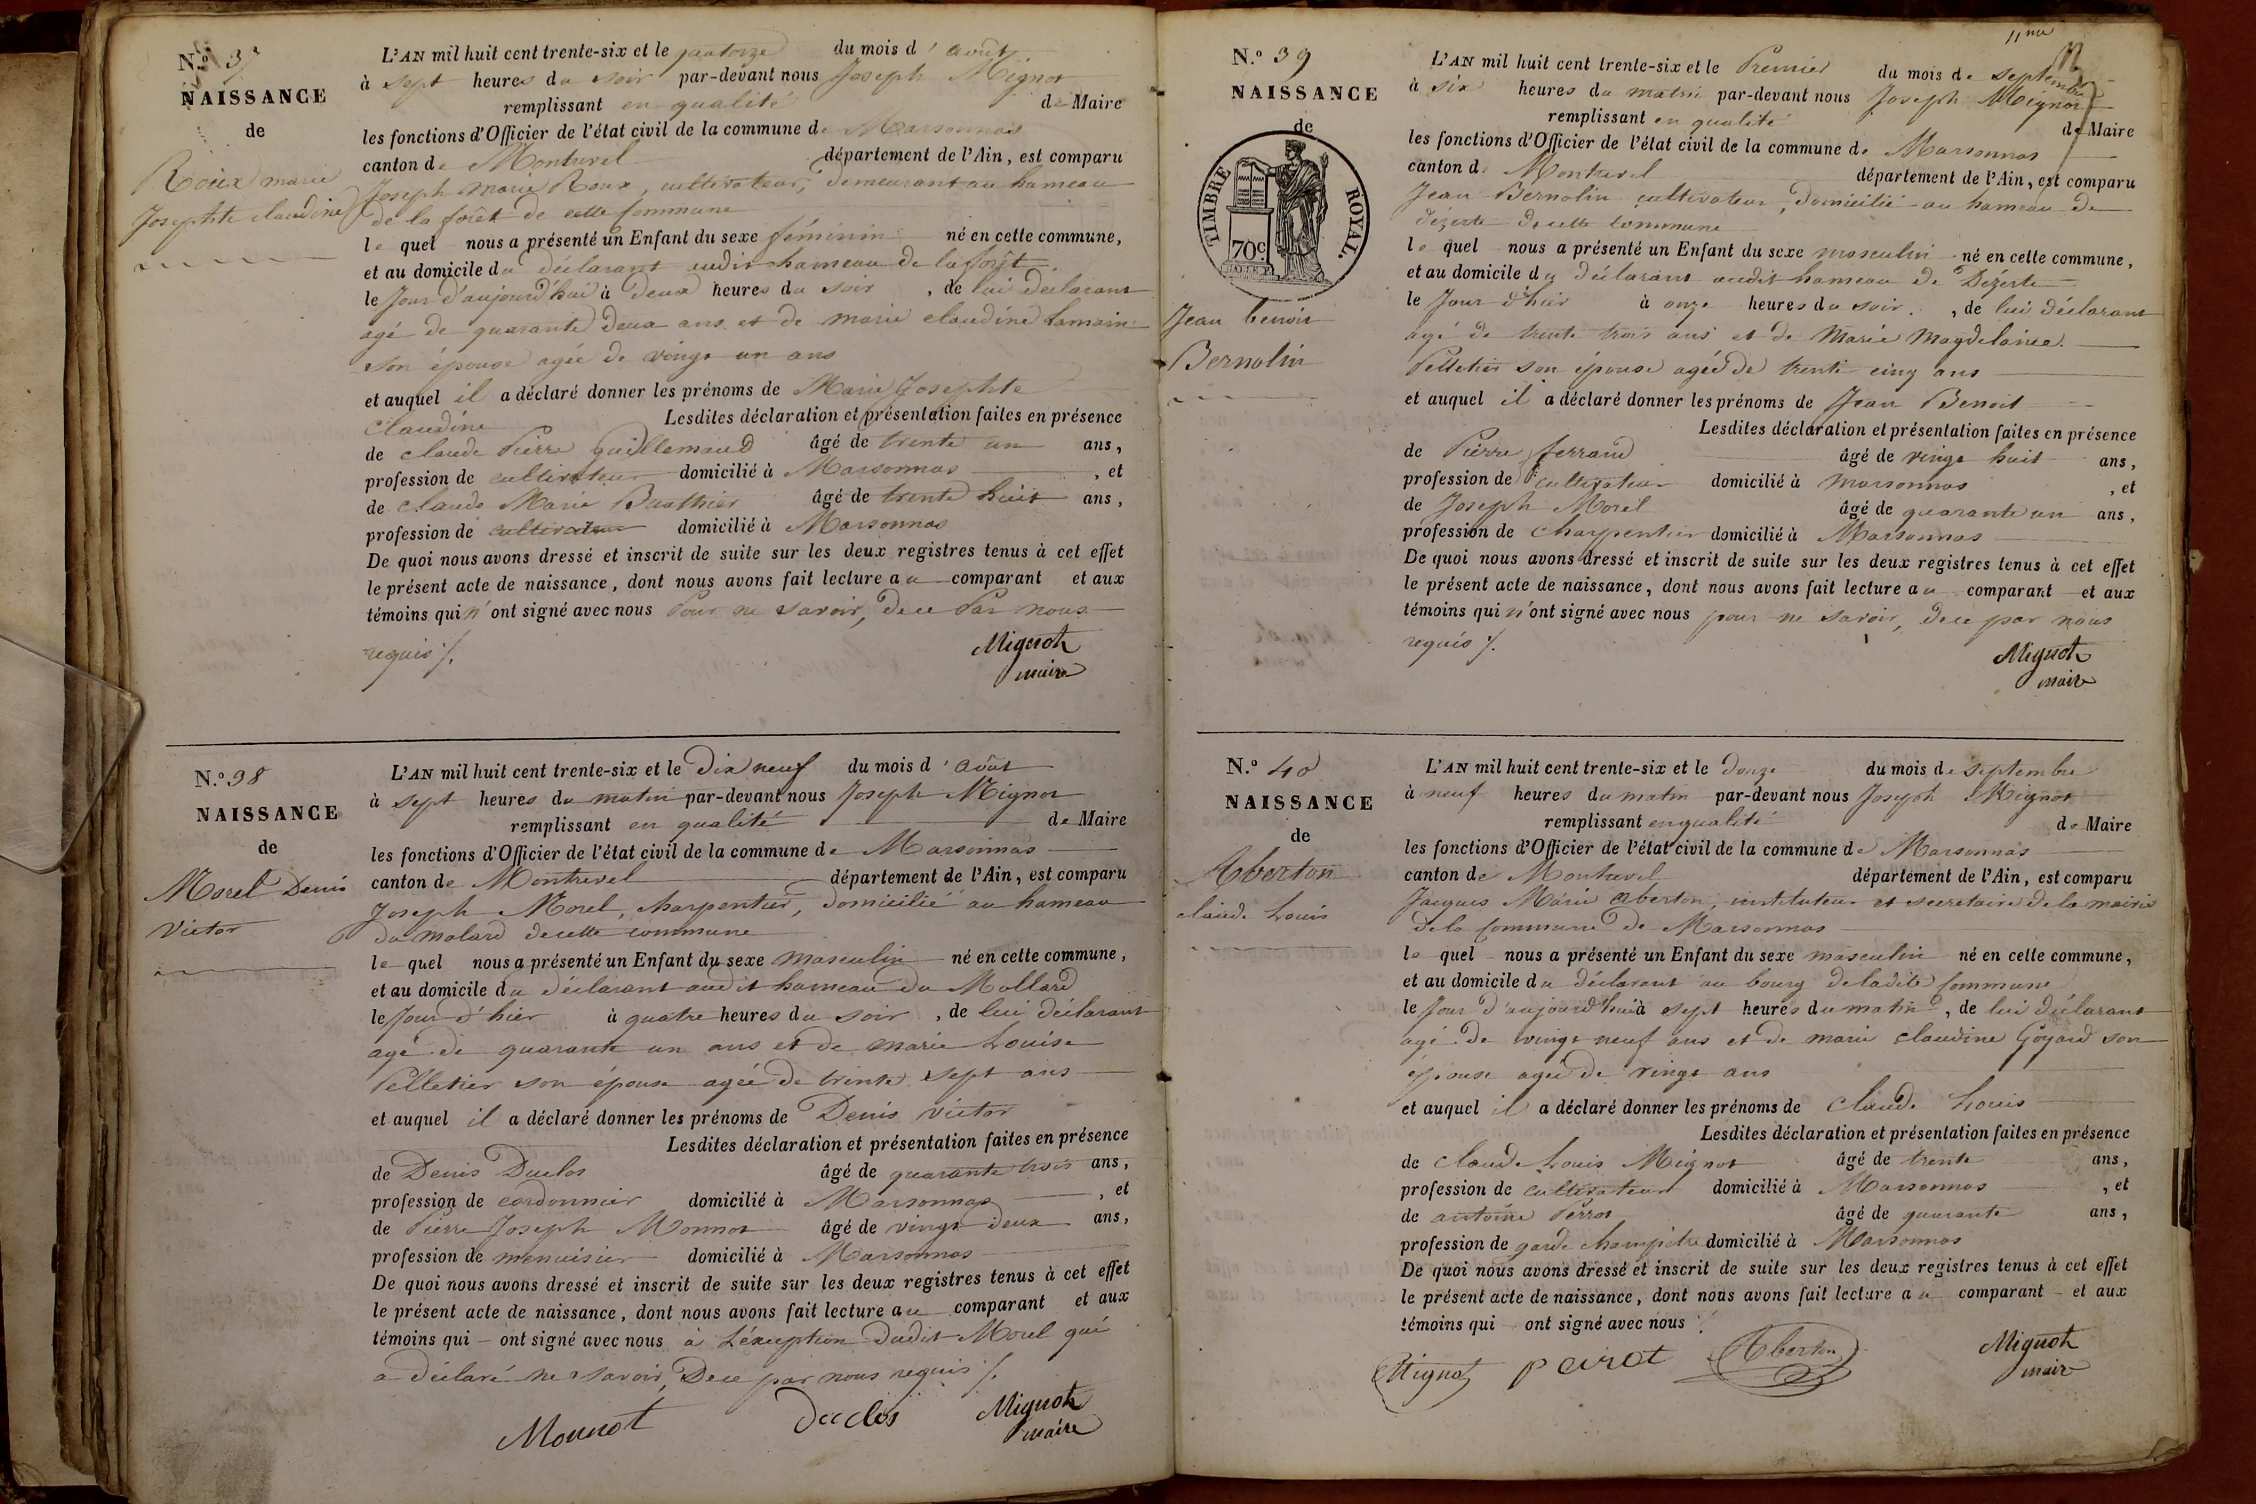 N.º 37
NAISSANCE
de
Roux marie
Josephte claudine
L'AN mil huit cent trente-six et le quatorze du mois d'août
à sept heures du soir par-devant nous Joseph Mignot
remplissant en qualité de Maire
les fonctions d'Officier de l'état civil de la commune de Marsonnas
canton de Montrevel département de l'Ain, est comparu
Joseph Marie Roux, cultivateur, demeurant au hameau
de la forêt de cette commune
le quel nous a présenté un Enfant du sexe féminin né en cette commune,
et au domicile du déclarant audit hameau de la forêt
le Jour d'aujourd'hui à deux heures du soir, de lui déclarant
agé de quarante deux ans et de marie claudine
son épouse agée de vingt un ans
et auquel il a déclaré donner les prénoms de Marie Josephte
claudine Lesdites déclaration et présentation faites en présence
de claude Pierre Guillemaud âgé de trente un ans,
profession de cultivateur domicilié à Marsonnas, et
de claude Marie Bauthier âgé de trente huit ans,
profession de cultivateur domicilié à Marsonnas
De quoi nous avons dressé et inscrit de suite sur les deux registres tenus à cet effet
le présent acte de naissance, dont nous avons fait lecture au comparant et aux
témoins qui n'ont signé avec nous Pour ne savoir, de ce Par nous
requis ./.
Mignot
maire
N.º 38
NAISSANCE
de
Morel Denis
Victor
L'AN mil huit cent trente-six et le Dix neuf du mois d'août
à sept heures du matin par-devant nous Joseph Mignot
remplissant en qualité de Maire
les fonctions d'Officier de l'état civil de la commune de Marsonnas
canton de Montrevel département de l'Ain, est comparu
Joseph Morel, charpentier, domicilié au hameau
du molard de cette commune
le quel nous a présenté un Enfant du sexe masculin né en cette commune,
et au domicile du déclarant audit hameau du Mollard
le Jour d'hier à quatre heures du soir, de lui déclarant
agé de quarante un ans et de marie Louise
Pelletier son épouse agée de trente sept ans
et auquel il a déclaré donner les prénoms de Denis victor
Lesdites déclaration et présentation faites en présence
de Denis Duclos âgé de quarante trois ans,
profession de cordonnier domicilié à Marsonnas, et
de Pierre Joseph Monnot âgé de vingt deux ans,
profession de menuisier domicilié à Marsonnas
De quoi nous avons dressé et inscrit de suite sur les deux registres tenus à cet effet
le présent acte de naissance, dont nous avons fait lecture au comparant et aux
témoins qui ont signé avec nous à L'éxception dudit Morel qui
a déclaré ne savoir, De ce par nous requis ./.
Monnot Duclos Mignot
maire
N.º 39
NAISSANCE
de
TIMBRE ROYAL.
70c
Jean benoit
Bernolin
L'AN mil huit cent trente-six et le Premier du mois de septembre
à six heures du matin par-devant nous Joseph Mignot
remplissant en qualité de Maire
les fonctions d'Officier de l'état civil de la commune de Marsonnas
canton de Montrevel département de l'Ain, est comparu
Jean Bernolin cultivateur, domicilié au hameau de
dézerte de cette commune
le quel nous a présenté un Enfant du sexe masculin né en cette commune,
et au domicile du déclarant audit hameau de Dézerte
le Jour d'hier à onze heures du soir, de lui déclarant
agé de trente trois ans et de Marie Magdelaine
Pelletier son épouse agée de trente cinq ans
et auquel il a déclaré donner les prénoms de Jean Benoit
Lesdites déclaration et présentation faites en présence
de Pierre ferrand âgé de vingt huit ans,
profession de cultivateur domicilié à Marsonnas, et
de Joseph Morel âgé de quarante un ans,
profession de charpentier domicilié à Marsonnas
De quoi nous avons dressé et inscrit de suite sur les deux registres tenus à cet effet
le présent acte de naissance, dont nous avons fait lecture au comparant et aux
témoins qui n'ont signé avec nous pour ne savoir, de ce par nous
requis ./.
Mignot
maire
N.º 40
NAISSANCE
de
Aberton
claude Louis
L'AN mil huit cent trente-six et le douze du mois de septembre
à neuf heures du matin par-devant nous Joseph Mignot
remplissant en qualité de Maire
les fonctions d'Officier de l'état civil de la commune de Marsonnas
canton de Montrevel département de l'Ain, est comparu
Jacques Marie aberton, instituteur et secretaire de la mairie
de la commune de Marsonnas
le quel nous a présenté un Enfant du sexe masculin né en cette commune,
et au domicile du déclarant au bourg de ladite commune
le Jour d'aujourd'hui à sept heures du matin, de lui déclarant
agé de vingt neuf ans et de marie claudine Goyard son
épouse agée de vingt ans
et auquel il a déclaré donner les prénoms de claude Louis
Lesdites déclaration et présentation faites en présence
de claude Louis Mignot âgé de trente ans,
profession de cultivateur domicilié à Marsonnas, et
de antoine Perrot âgé de quarante ans,
profession de garde champêtre domicilié à Marsonnas
De quoi nous avons dressé et inscrit de suite sur les deux registres tenus à cet effet
le présent acte de naissance, dont nous avons fait lecture au comparant et aux
témoins qui ont signé avec nous ./.
Mignot peirot Aberton Mignot
maire